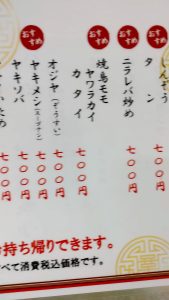 おすすめ
んぞう
タン
七〇〇円
おすすめ
ニラレバ炒め
七〇〇円
おすすめ
焼鳥モモ
ヤワラカイ
カタイ
七〇〇円
オジヤ(ぞうすい)
七〇〇円
おすすめ
ヤキメシ
七〇〇円
ヤキソバ
七〇〇円
いため
七〇〇円
持ち帰りできます。
べて消費税込価格です。